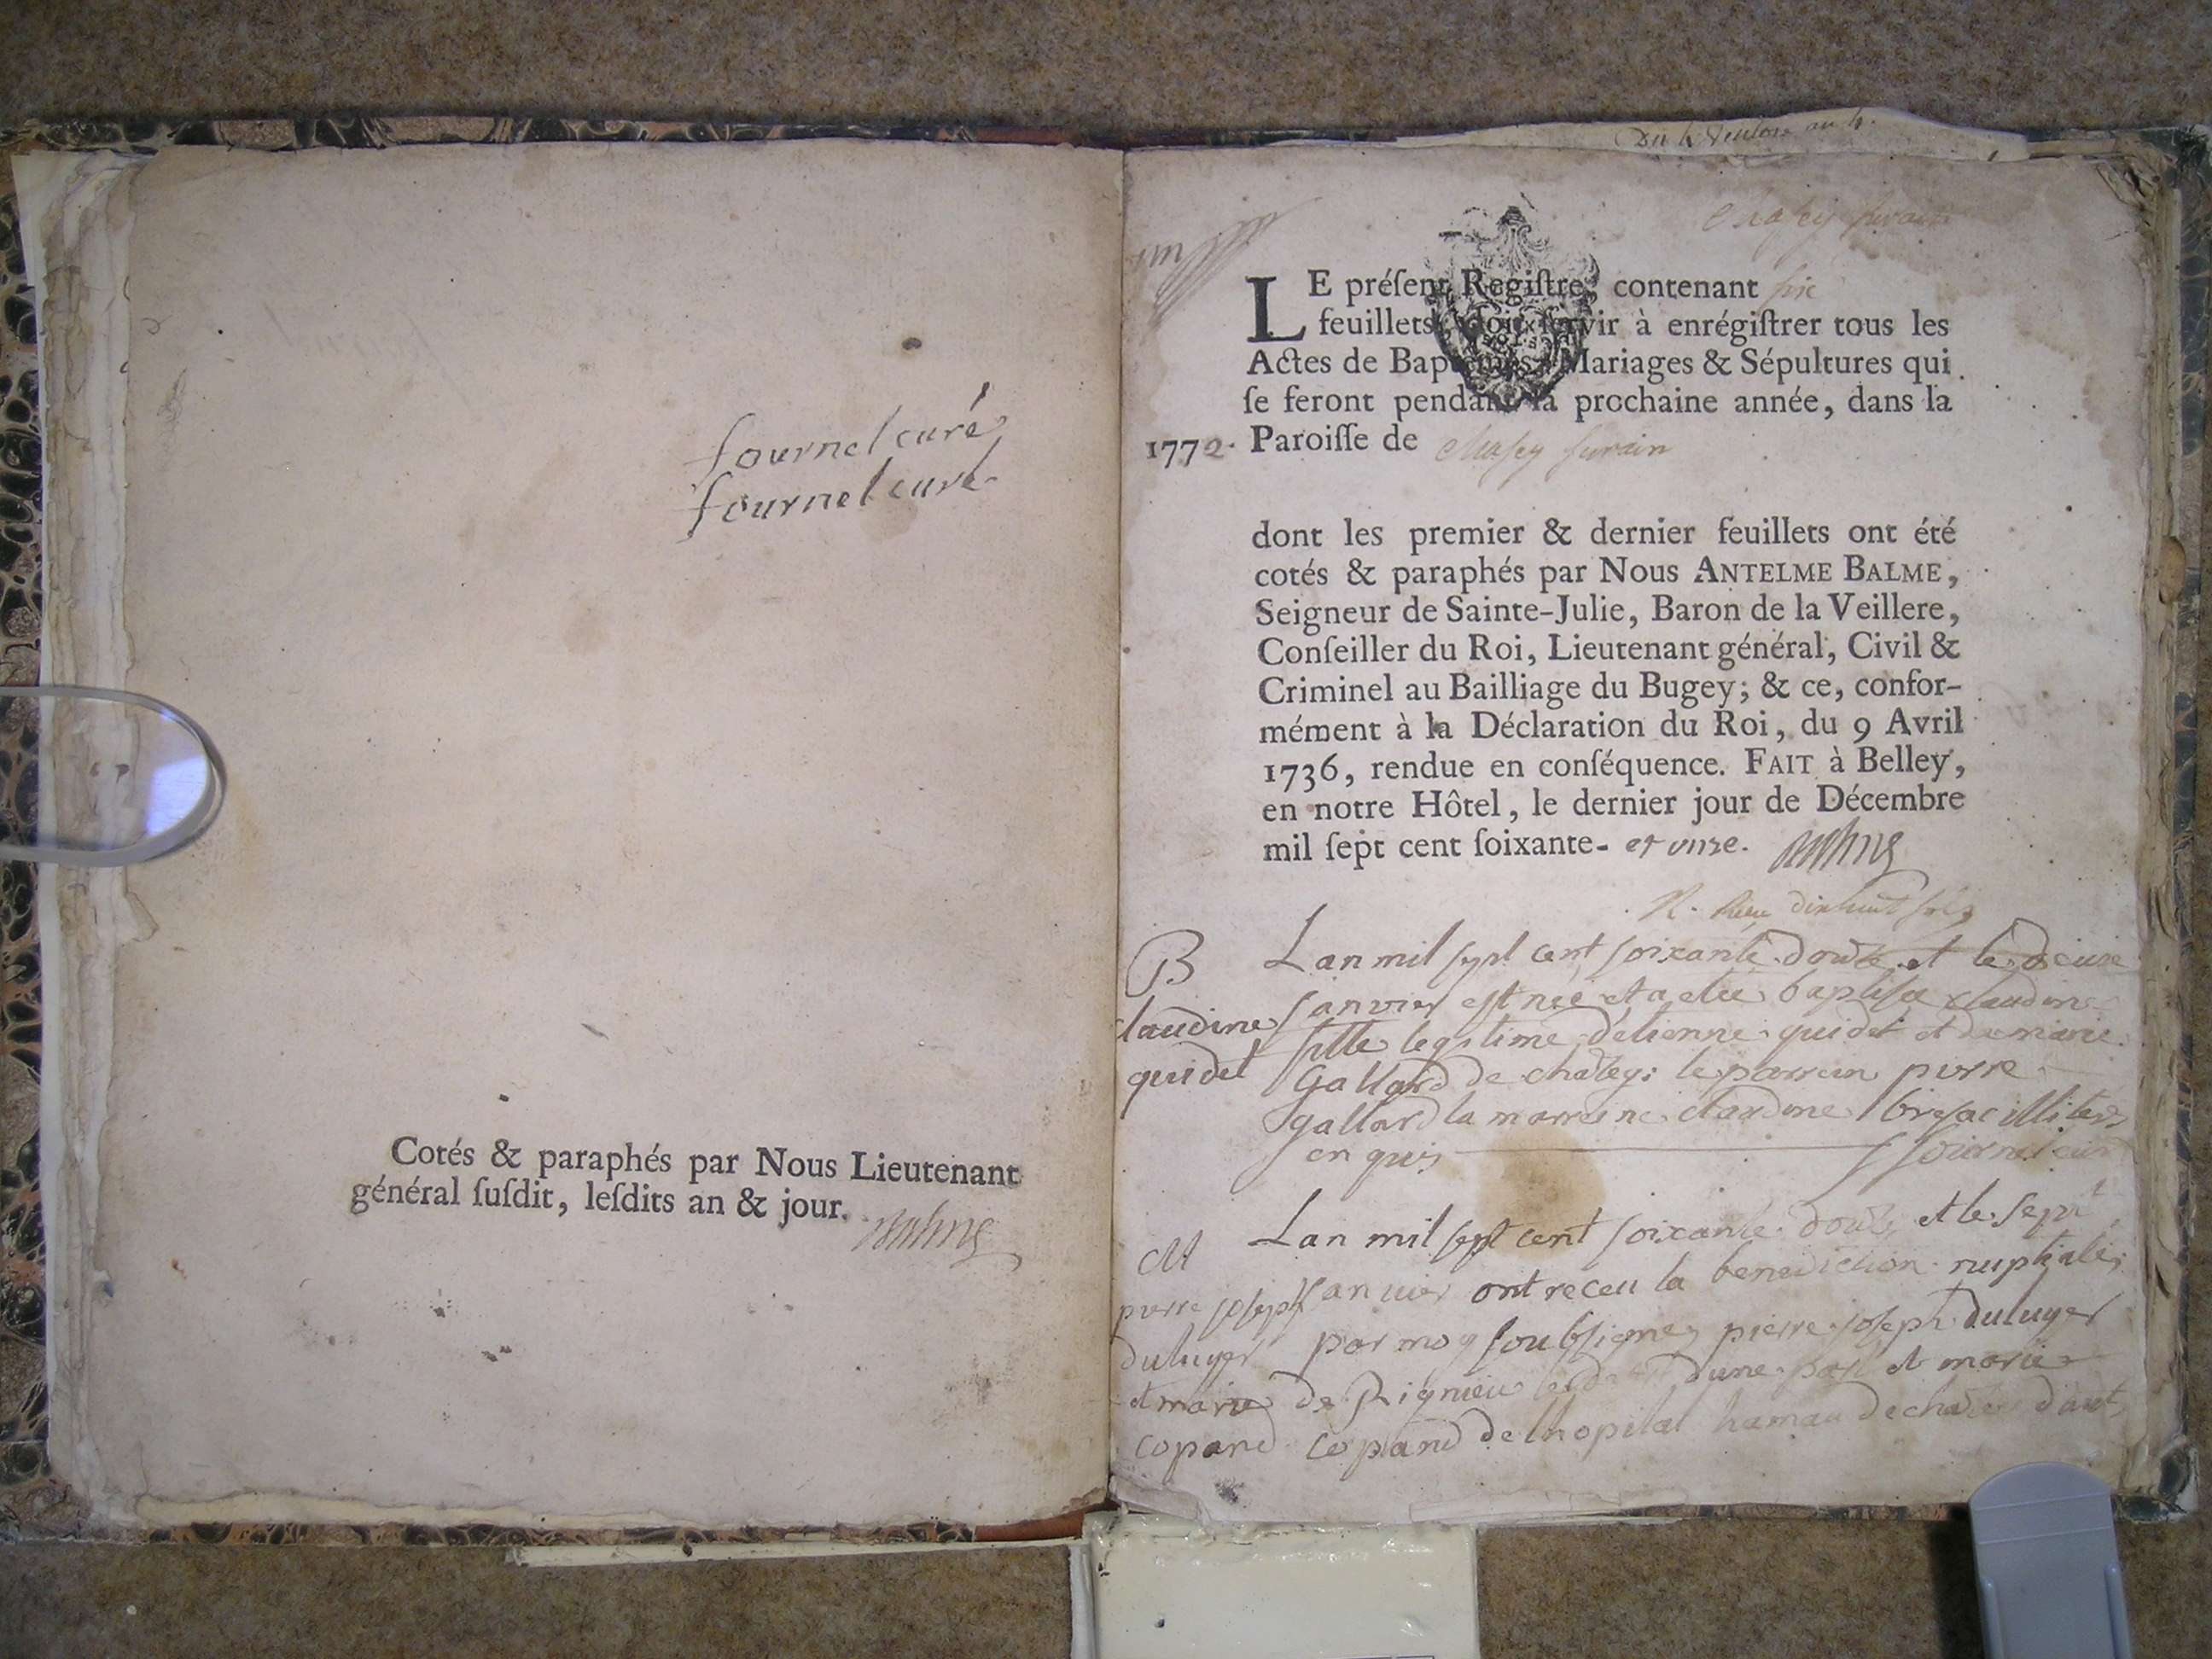 fournel curé
fournel curé
Cotés & paraphés par Nous Lieutenant
général ſuſdit, leſdits an & jour.
Du 4 Ventose an 4.
LE préſent Regiſtre, contenant six
feuillets, doit ſervir à enrégiſtrer tous les
Actes de Baptêmes, Mariages & Sépultures qui
ſe feront pendant la prochaine année, dans la
1772. Paroiſſe de Chasey surain
dont les premier & dernier feuillets ont été
cotés & paraphés par Nous ANTELME BALME,
Seigneur de Sainte-Julie, Baron de la Veillere,
Conſeiller du Roi, Lieutenant général, Civil &
Criminel au Bailliage du Bugey; & ce, confor-
mément à la Déclaration du Roi, du 9 Avril
1736, rendue en conſéquence. FAIT à Belley,
en notre Hôtel, le dernier jour de Décembre
mil ſept cent ſoixante- et onze.
B
claudine
quidet
Lan mil sept cent soixante douze et le
janvier est née et a eteé baptisée claudine
fille legitime detienne quidet et de marie
Gallard de chazey: le parrein pierre
gallard la marreine claudine brisac illiteres
enquis fournel curé
M
pierre joseph
duluyer
et marie
copard
Lan mil sept cent soixante douze et le sept
janvier ont receu la benediction nuptiale
par moy soubsigné pierre joseph duluyer
de Rignieu dune part et marie
copard de lhopital hamau de chazey dautre